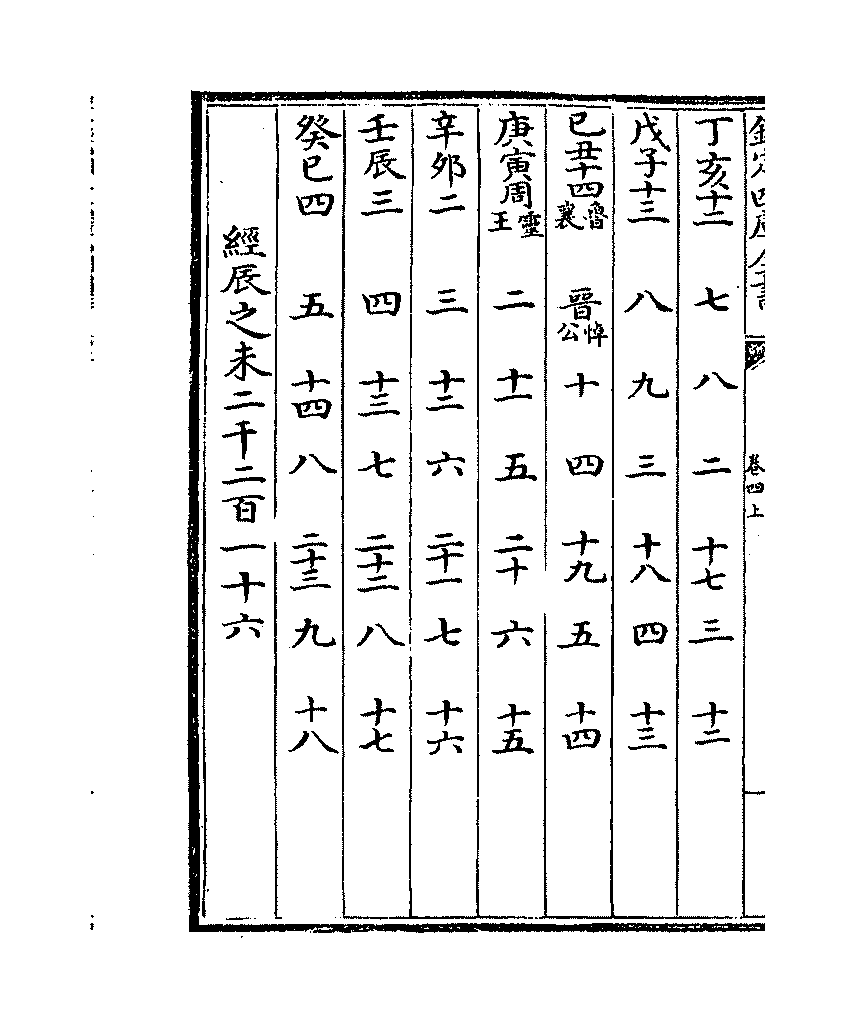 欽定四庫全書 卷四上
丁亥十二 七 八 二 十七 三 十二
戊子十三 八 九 三 十八 四 十三
己丑十四魯襄 晉悼公 十 四 十九 五 十四
庚寅周靈王 二 十一 五 二十 六 十五
辛夘二 三 十二 六 二十一 七 十六
壬辰三 四 十三 七 二十二 八 十七
癸巳四 五 十四 八 二十三 九 十八
經辰之未二千二百一十六